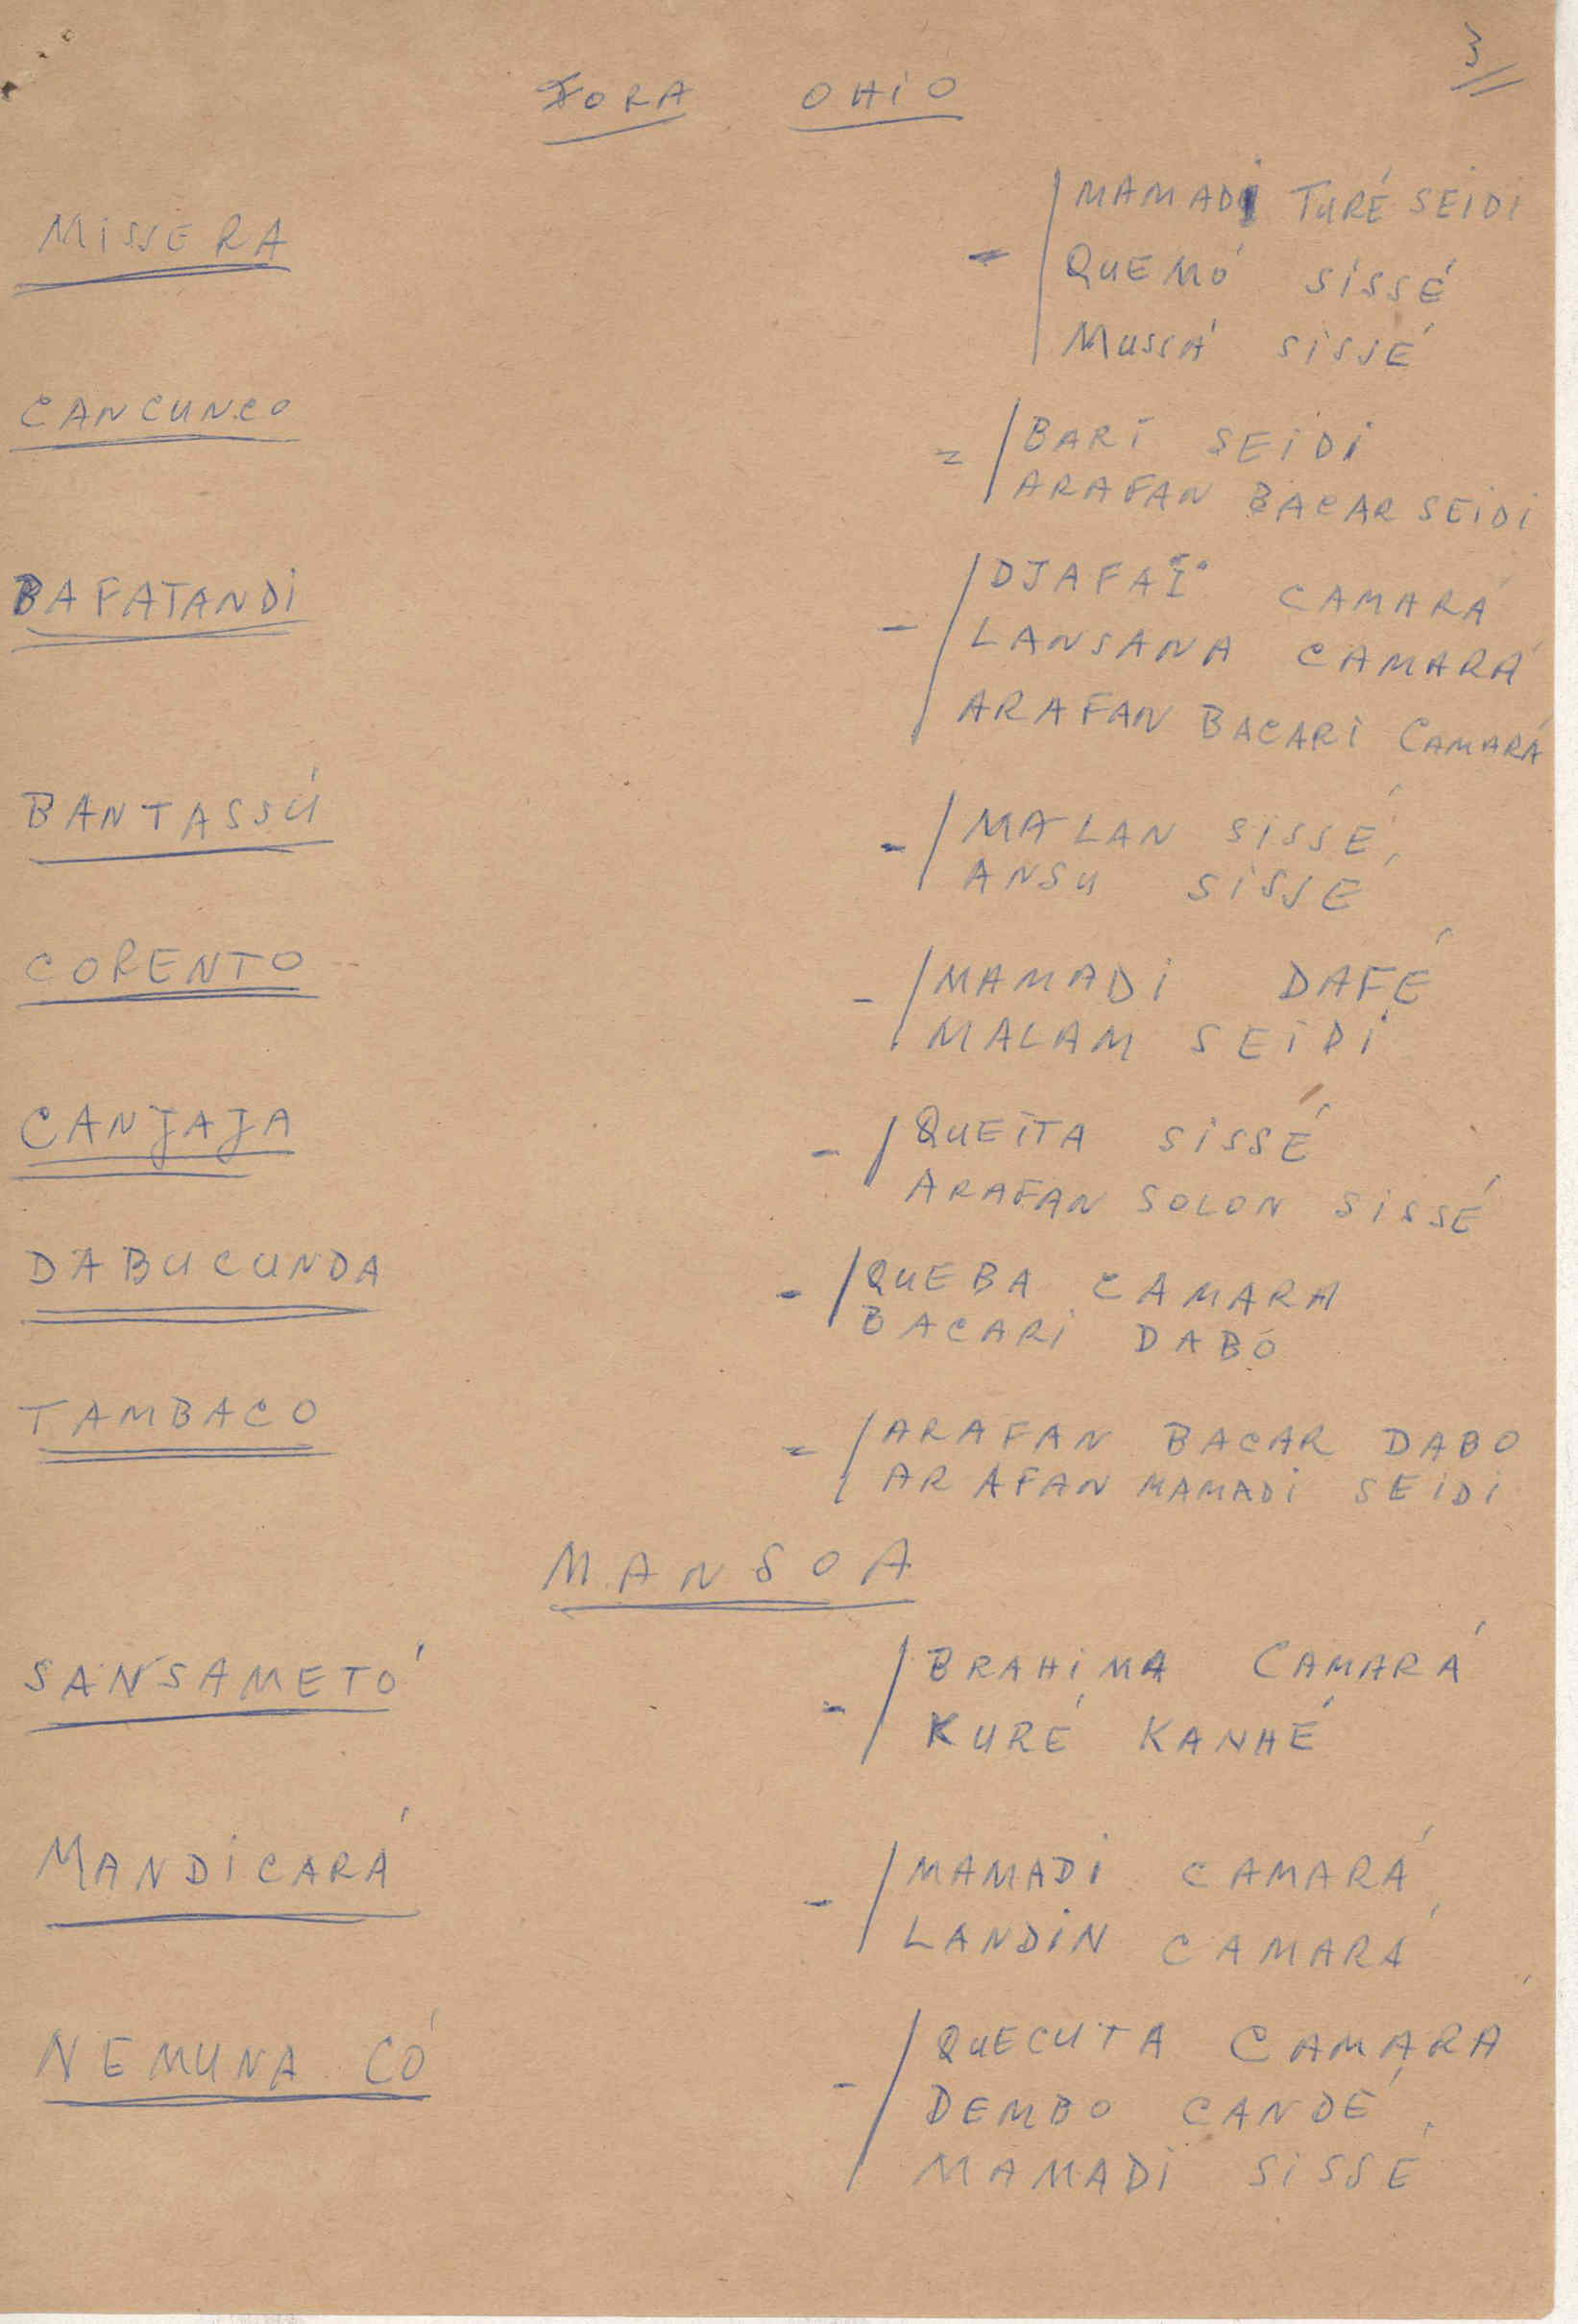 3
FORA OHIO
MISSERA
- MAMADI TURÉ SEIDI
QUEMÓ SISSÉ
MUSSÁ SISSÉ
CANCUNCO
= BARI SEIDI
ARAFAN BACAR SEIDI
BAFATANDI
- DJAFAI CAMARÁ
LANSANA CAMARÁ
ARAFAN BACARI CAMARÁ
BANTASSÚ
- MALAN SISSÉ
ANSU SISSÉ
CORENTO
- MAMADI DAFÉ
MALAM SEIDI
CANJAJA
- QUEITA SISSÉ
ARAFAN SOLON SISSÉ
DABUCUNDA
- QUEBA CAMARA
BACARI DABÓ
TAMBACO
= ARAFAN BACAR DABO
ARAFAN MAMADI SEIDI
MANSOA
SANSAMETÓ
- BRAHIMA CAMARÁ
KURÉ KANHÉ
MANDICARÁ
- MAMADI CAMARÁ
LANDIN CAMARÁ
NEMUNA CÓ
- QUECUTA CAMARÁ
DEMBO CANDÉ
MAMADI SISSÉ